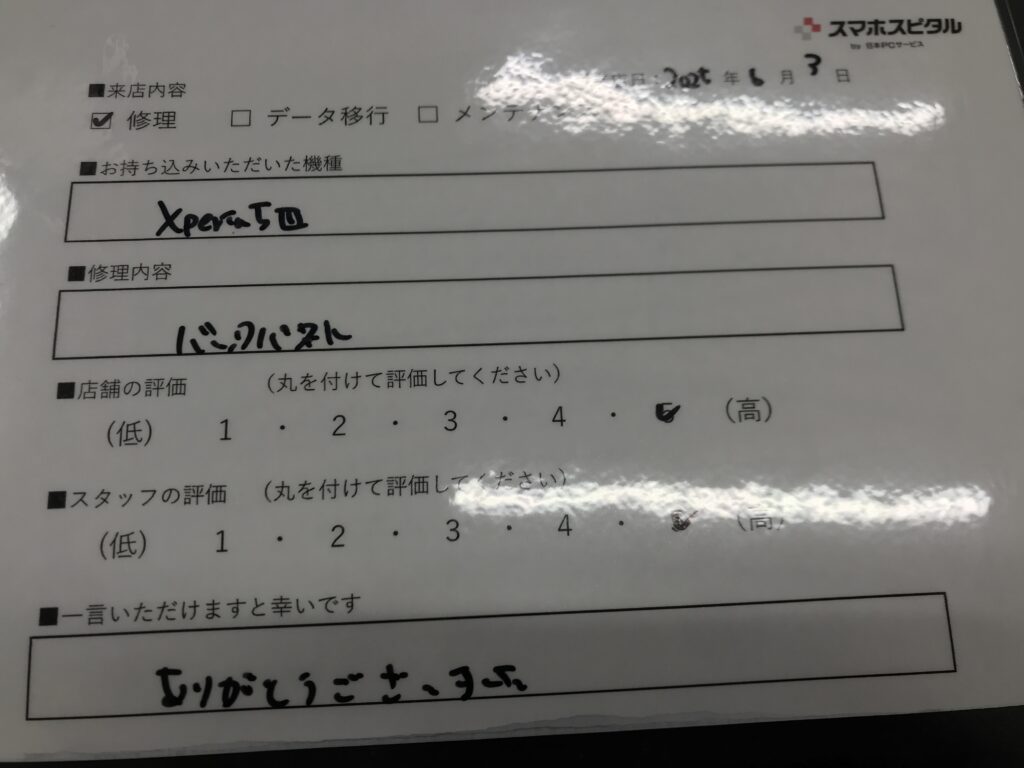 スマホスピタル
by 日本PCサービス
日：2025年6月3日
■来店内容
☑ 修理 □ データ移行 □ メンテナンス
■お持ち込みいただいた機種
Xperia5III
■修理内容
バックパネル
■店舗の評価 （丸を付けて評価してください）
（低） 1 ・ 2 ・ 3 ・ 4 ・ 5 （高）
■スタッフの評価 （丸を付けて評価してください）
（低） 1 ・ 2 ・ 3 ・ 4 ・ 5 （高）
■一言いただけますと幸いです
ありがとうございました